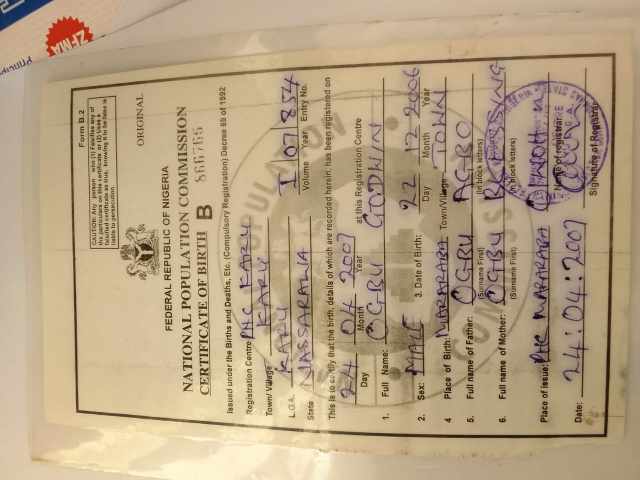 ZFMA
Form B.2
CAUTION: Any person who (1) Falsifies any of
the particulars on this certificate or (2) Uses a
falsified certificate as true, knowing it to be false is
liable to persecution.
ORIGINAL
FEDERAL REPUBLIC OF NIGERIA
NATIONAL POPULATION COMMISSION
CERTIFICATE OF BIRTH B
Issued under the Births and Deaths, Etc. (Compulsory Registration) Decree 69 of 1992
Registration Centre PHC KARU
Town/Village KARU
L.G.A. KARU I 07 854
State NASSARAWA Volume Year Entry No.
This is to certify that the birth, details of which are recorded herein, has been registered on
24 04 2007 at this Registration Centre
Day Month Year
1. Full Name: OGBU GODWIN
2. Sex: MALE 3. Date of Birth: 22 12 2006
Day Month Year
4 Place of Birth: MARARABA Town/Village TOWN
5. Full name of Father: OGBU AGBO
(Surname First) (in block letters)
6. Full name of Mother: OGBU BLESSING
(Surname First) (in block letters)
Place of issue: PHC MARARABA
Name of registrar
Date: 24:04:2007
Signature of Registrar